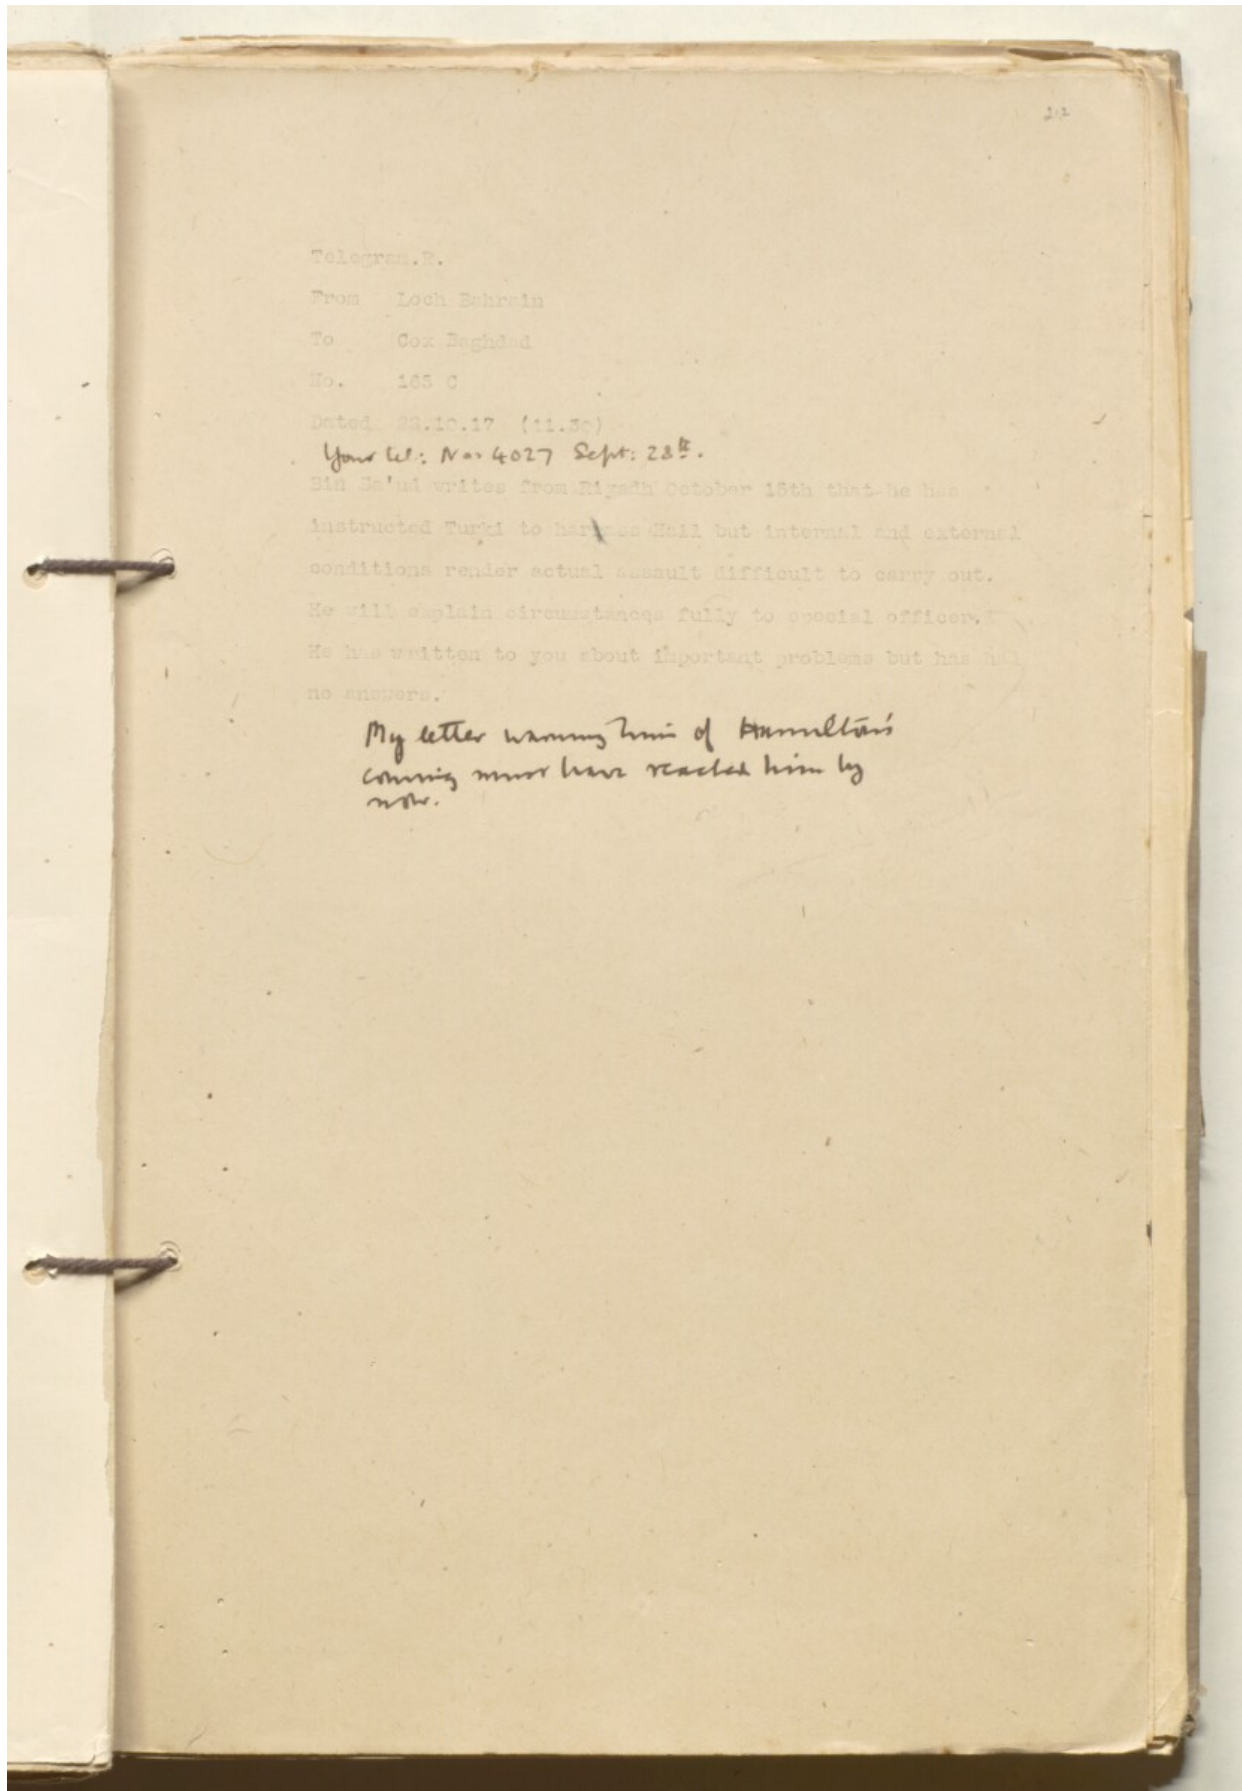 212
Telegram.R.
From Loch Bahrain
To Cox Baghdad
No. 165 C
Dated 22.10.17 (11.30)
Your tel: No. 4027 Sept: 28th.
Bin Sa'ud writes from Riyadh October 15th that he has
instructed Turki to harrass Hail but internal and external
conditions render actual assault difficult to carry out.
He will explain circumstances fully to special officer.
He has written to you about important problems but has had
no answers.
My letter warning him of Hamilton's
coming must have reached him by
now.